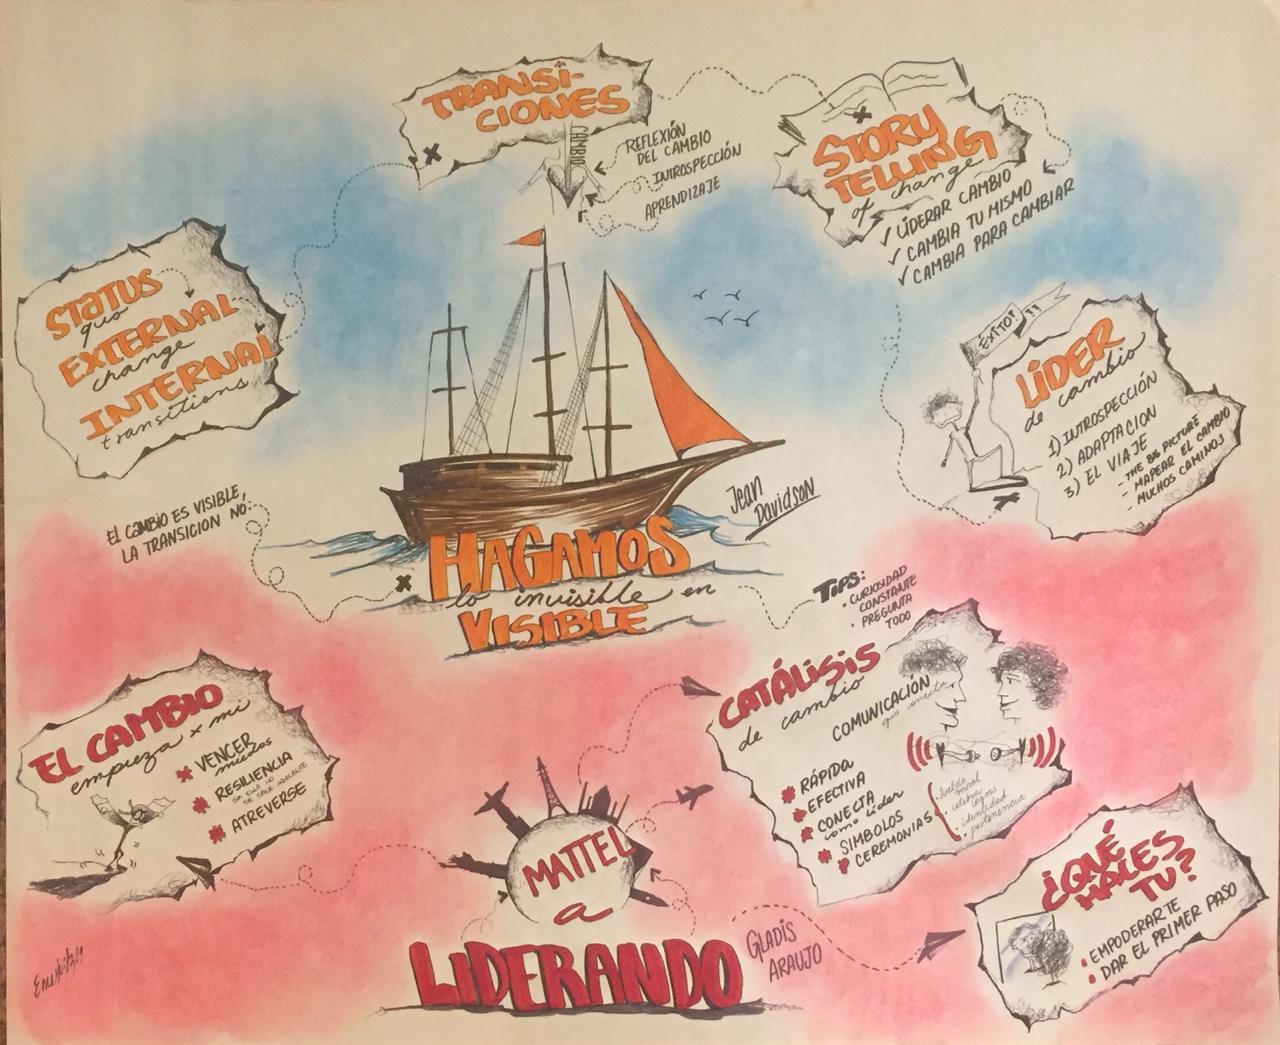 TRANSI-
CIONES
CAMBIO
REFLEXIÓN
DEL CAMBIO
INTROSPECCIÓN
APRENDIZAJE
STORY
TELLING
of change
LIDERAR CAMBIO
CAMBIA TU MISMO
CAMBIA PARA CAMBIAR
STATUS
quo
EXTERNAL
change
INTERNAL
transitions
ÉXITO!!!
LÍDER
de cambio
1) INTROSPECCIÓN
2) ADAPTACION
3) EL VIAJE
- THE BIG PICTURE
- MAPEAR EL CAMBIO
- MUCHOS CAMINOS
EL CAMBIO ES VISIBLE,
LA TRANSICION NO.
Jean
Davidson
HAGAMOS
lo invisible en
VISIBLE
TIPS:
• CURIOSIDAD
CONSTANTE
• PREGUNTA
TODO
EL CAMBIO
empieza x mi
VENCER
miedos
RESILIENCIA
SIN ELLA NO
SE SALE ADELANTE
ATREVERSE
CATÁLISIS
de cambio
COMUNICACIÓN
que conecta
RÁPIDA
EFECTIVA
CONECTA
como líder
SIMBOLOS
CEREMONIAS
celebra
logros
identidad
pertenencia
MATTEL
a
LIDERANDO
GLADIS
ARAUJO
¿QUÉ
HACES
TU?
• EMPODERARTE
• DAR EL PRIMER PASO